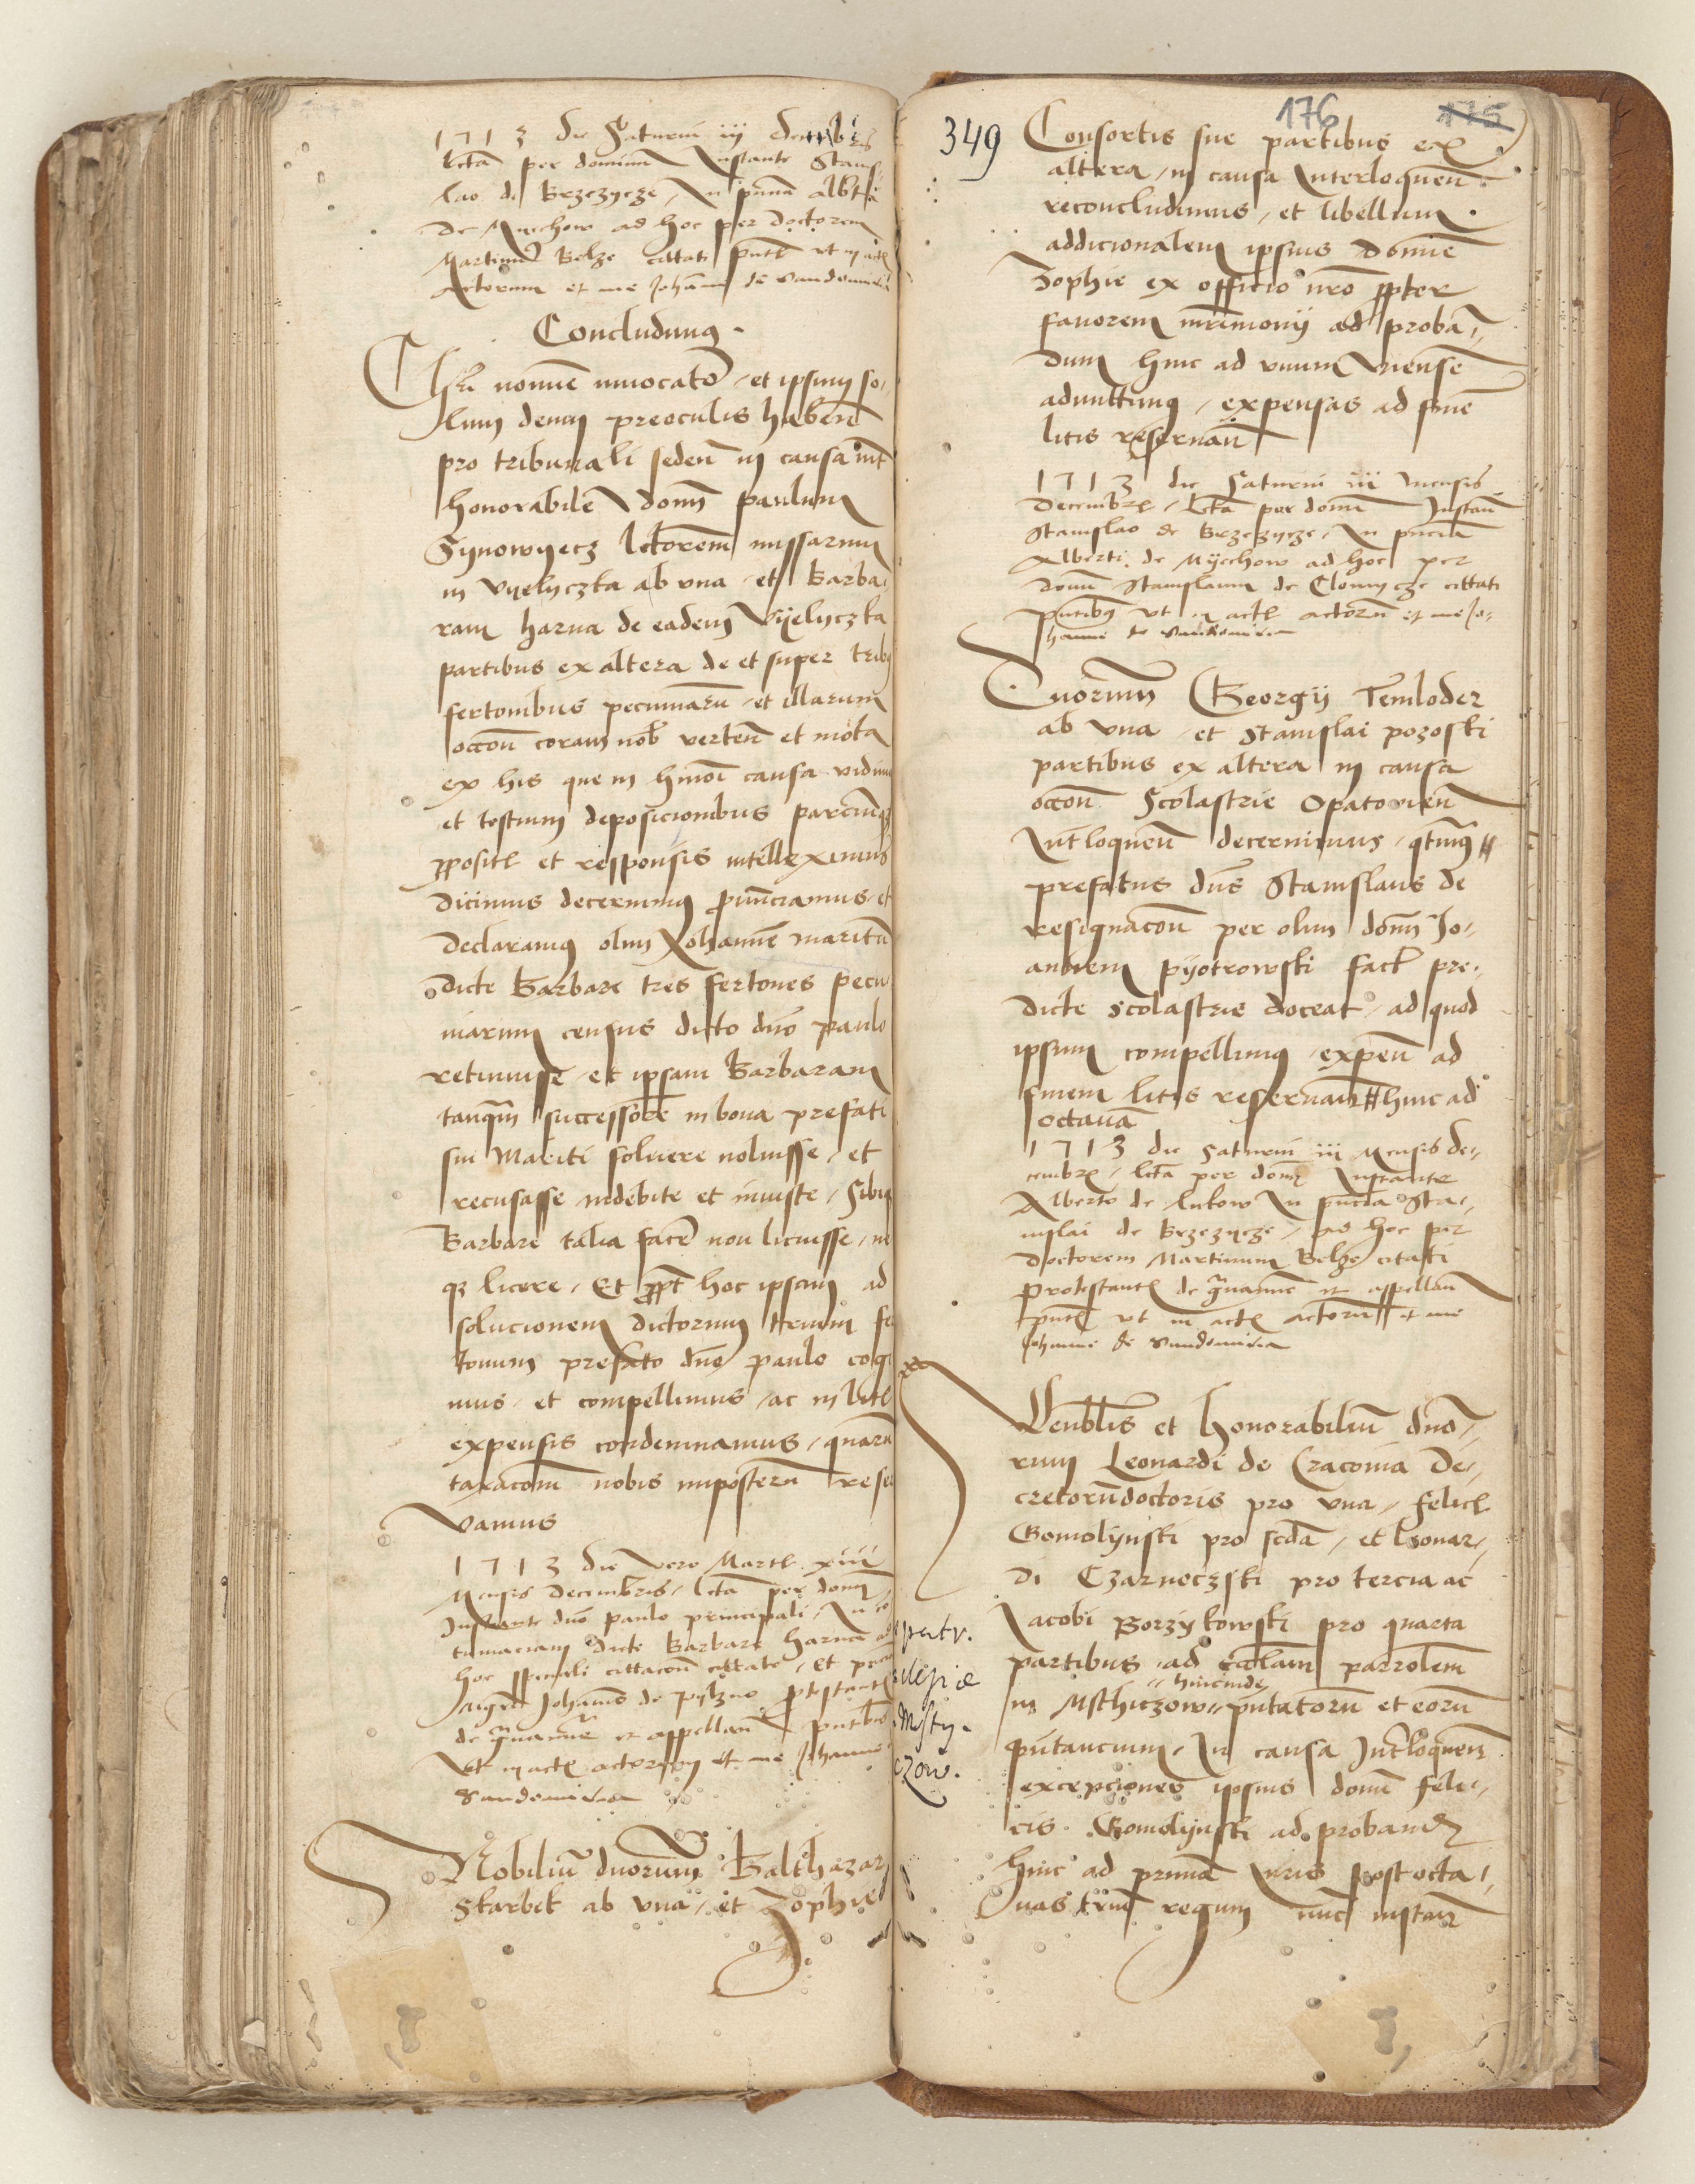 1713 die Saturni iij decembris
lcta per dominum Instante Stanis
lao de Brzezycze, In pnciā alberti
De Myechow ad hoc per doctorem
Martinū Belze cittati pntibus vt in actis
Actorum et me Johanne de Sandomiria
Concludimus.
Christi nomine inuocato, et ipsum so,
lum deum preoculis habeñ
pro tribunali sedeñ in causa int
honorabilē domī paulum
Synowyecz lctorem missarum
in Vyelyczka ab vna et Barba,
ram harna de eadem Vyelyczka
partibus ex altera de et super tribus
fertonibus pecuniarū, et illarum
occoñ coram nob verteñ et mota
ex his que in hmoi causa vidimus
et testium deposicionibus parciumqz
ppositis et responsis intelleximus
Dicimus decernimus pnūnciamus et
declaramus olim Johannē maritū
dicte Barbare tres fertones pecu
niarum census dicto dno paulo
retinuisse, et ipsam Barbaram
tanquam successorē in bona prefati
sui Mariti soluere noluisse, et
recusasse indebite et iniuste, Sibiqz
Barbare talia facē non licuisse, ne
qz licere, Et ppt hoc ipsam ad
solucionem dictorum trium fer
tonum prefato dno paulo cogi
mus, et compellimus, ac in litis
expensis condemnamus, quarū
taxacioñ nobis imposterū reser
vamus
1713 die vero Martis xiii
Mensis Decembris, lcta per domī
Instante dno paulo principali, In co
tumaciam dicte Barbare harna ad
hoc spciali cittacoñ cittate, et pre
mgrī Johannis de pylzno ptestantis
de grauamē et appellañ pntibus
Vt in actis actorum et me Johanne
Sandomiria
Nobiliū duorum Balthazar
Skarbek ab vna, et Zophie
176
175
349
Consortis sue partibus ex
altera, in causa Interloqueñ
reconcludimus, et libellum
addicionalem ipsius domie
Zophie ex officio nro ppter
fauorem mrimonij ad proban,
dum hinc ad vnum Mensē
admittimus, expensas ad finē
litis reseruañ
1713 die Saturni iii Mensis
Decembris, lcta per domī Instañ
Stanislao de Brzezycze, In pnciā
Alberti de Myechow ad hoc per
domī Stanislaum de Clomycze cittati
pntibus vt in actis actorū et me Jo,
hanne de Sandomiria
Duorum Georgij Temloder
ab vna et Stanislai pozoski
partibus ex altera in causa
occoñ Scolastrie Opatowieñ
Intloqueñ decernimus, qtinus #
prefatus dns Stanislaus de
resignacoñ per olim domī Jo,
annem pyotrowski fact pre,
dicte scolastrie doceat, ad quod
ipsum compellimus, expeñ ad
finem litis reseruañ # hinc ad
octauā
1713 die Saturni iii Mensis de,
cembris, lcta per domī Instante
Alberto de lukow In pnciā Sta,
nislai de Brzezycze, ad hoc per
doctorem Martinum Belze citati
protestantis de grauamē et appellañ
pntē vt in actis actorū et me
Johanne de Sandomiria
Venblis et honorabiliū dno,
rum Leonardi de Cracouia De,
cretorū doctoris pro vna, felicis
Gomolynski pro scda, et leonar,
di Czarnoczski pro tercia ac
Jacobi Borzykowski pro quarta
partibus, ad ecclam parrolem
hincinde
in Msthiczow, pntatorū et eorū
pntancium, In causa Intrloqueñ
excepciones ipsius domī feli,
cis Gomolynski ad probandum
hinc ad primā Juris post octa,
uas triū regum nunc instañ
patr.
ulesiæ
Msty.
czow.